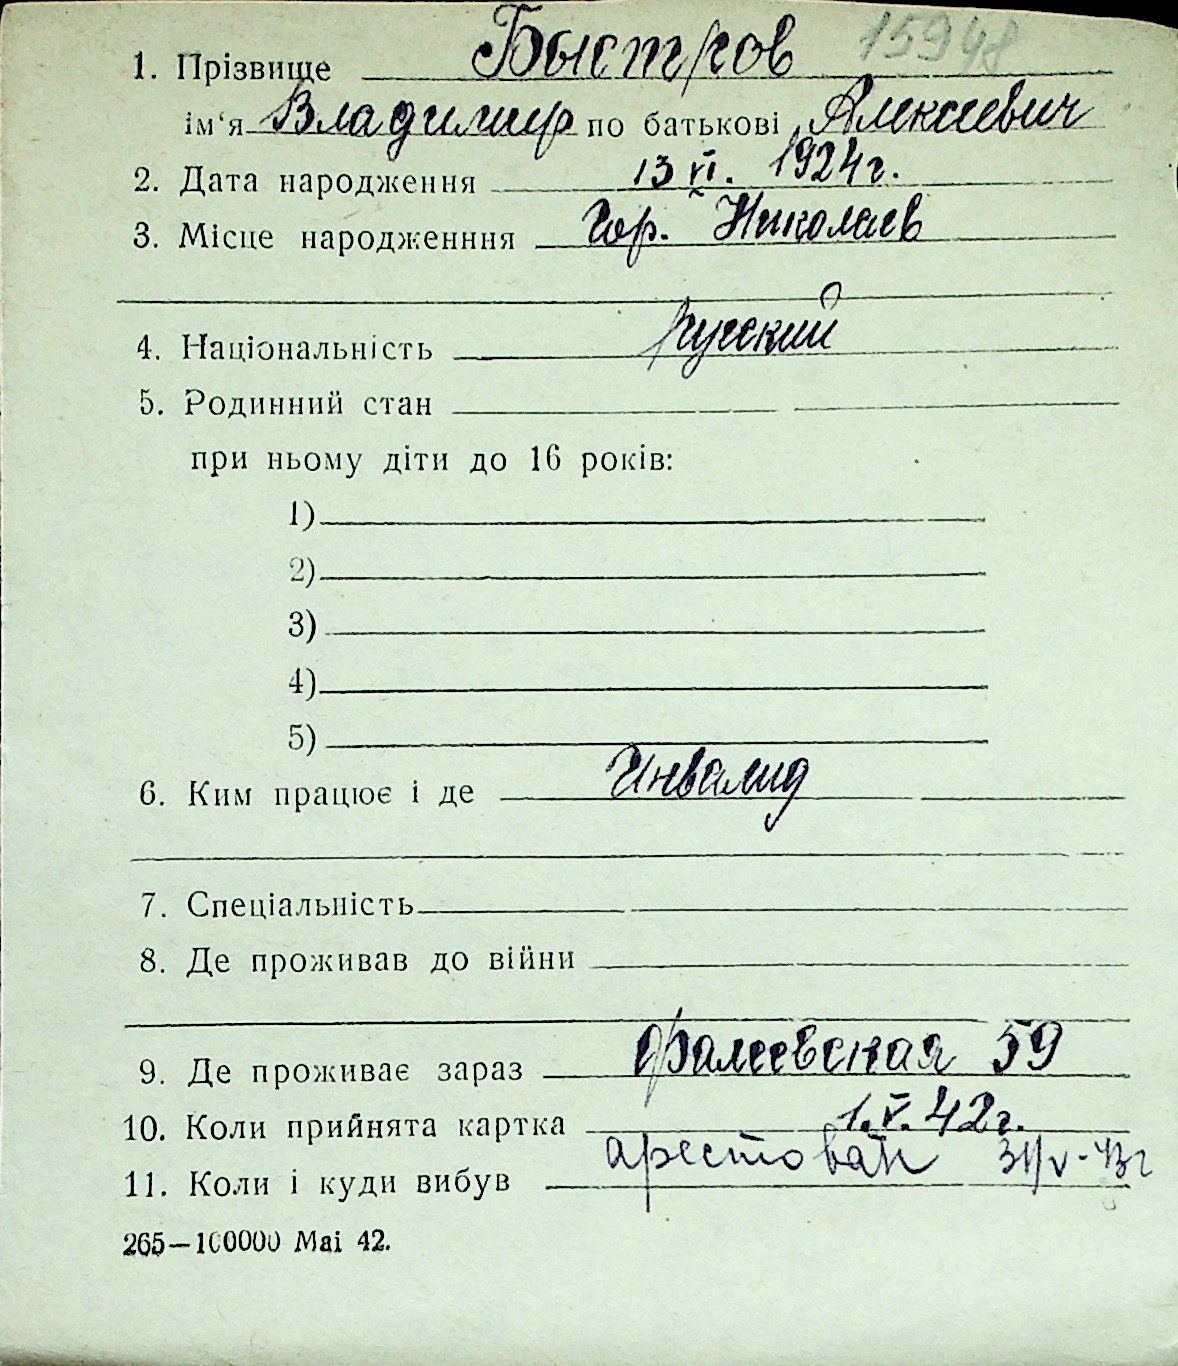 1. Прізвище Быстров 15948
ім'я Владимир по батькові Алексеевич
2. Дата народження 13 VI. 1924г.
3. Місце народженння Гор. Николаев
4. Національність Русский
5. Родинний стан
при ньому діти до 16 років:
1)
2)
3)
4)
5)
6. Ким працює і де Инвалид
7. Спеціальність
8. Де проживав до війни
9. Де проживає зараз Фалеевская 59
10. Коли прийнята картка 1.V.42г.
11. Коли і куди вибув арестован 31/V-43г
265—100000 Mai 42.